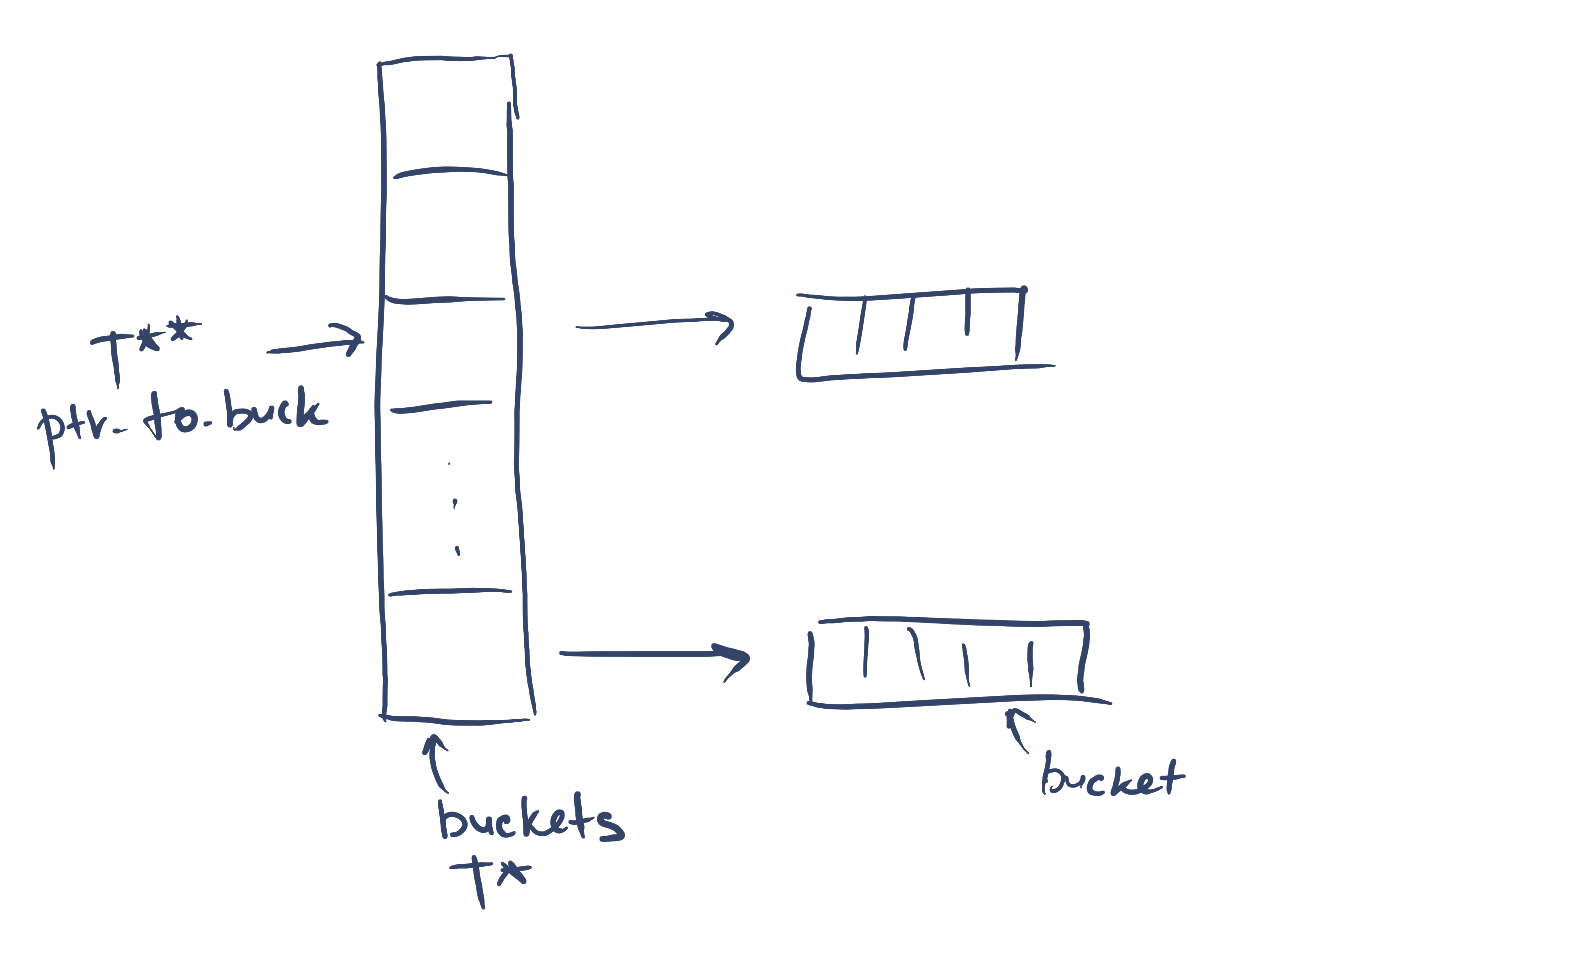 T**
ptr_to_buck
bucket
buckets
T*